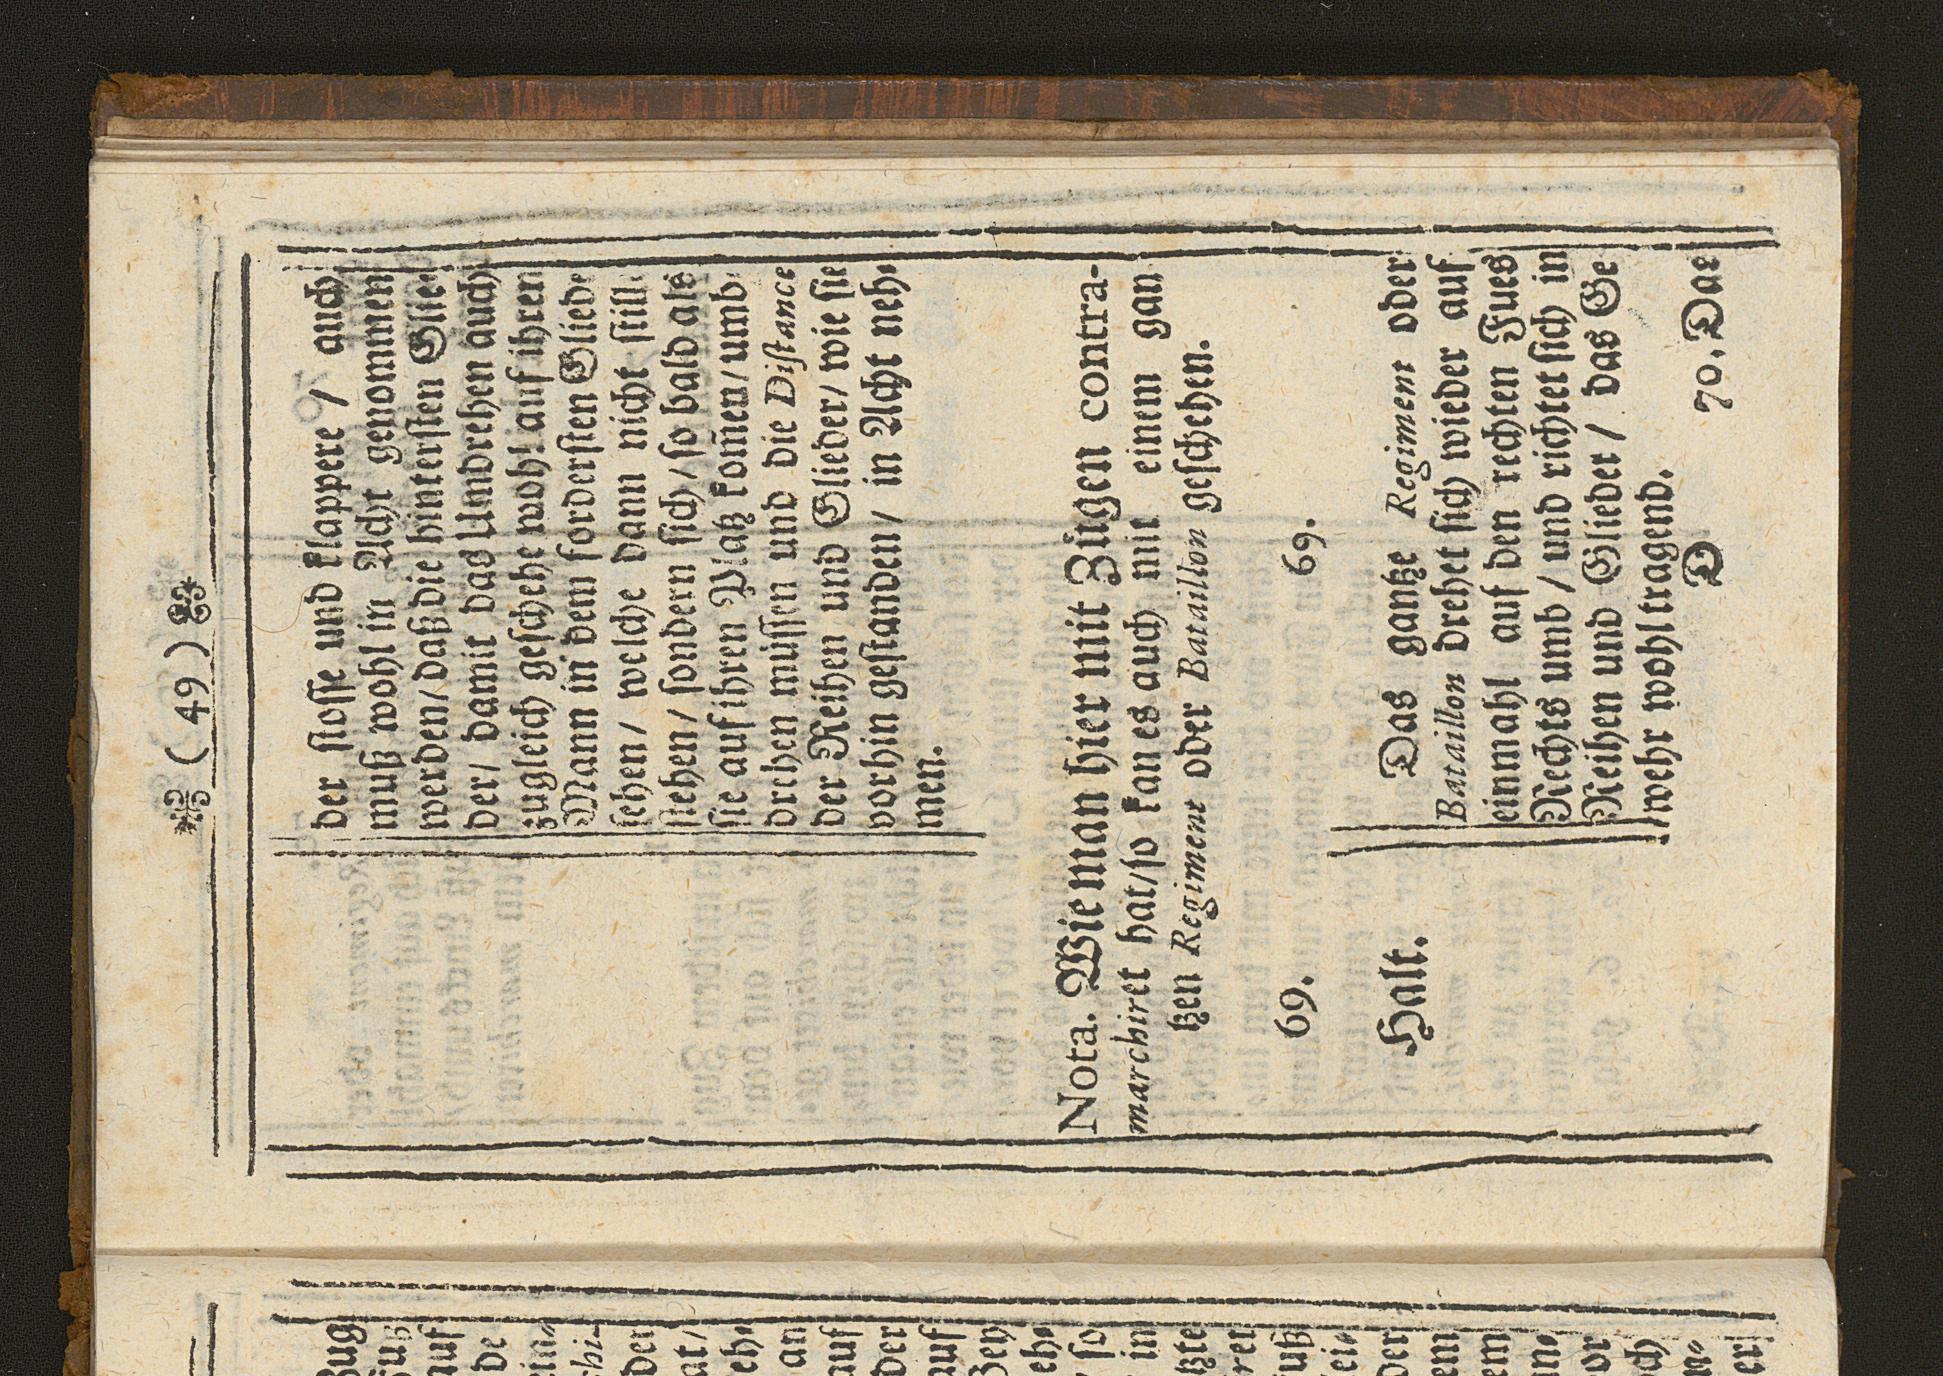 ( 49 )
der stosse und klappere / auch
muß wohl in Acht genommen
werden/ daß die hintersten Glie-
der/ damit das Umdrehen auch
zugleich geschehe wohl auf ihren
Mann in dem fordersten Gliede
sehen/ welche dann nicht still-
stehen/ sondern sich / so bald als
sie auf ihren Platz kom̃en/ umb-
drehen müssen und die Distance
der Reihen und Glieder/ wie sie
vorhin gestanden / in Acht neh-
men.
Nota. Wie man hier mit Zügen contra-
marchiret hat/ so kan es auch mit einem gan
tzen Regiment oder Bataillon geschehen.
69. 69.
Halt.
Das gantze Regiment oder
Bataillon drehet sich wieder auf
einmahl auf den rechten Fues
Rechts umb / und richtet sich in
Reihen und Glieder / das Ge
wehr wohl tragend.
D 70. Das
Zug
Fuß
auf
de
ein-
chi-
der
at/
eh-
an
auf
der
auf
Bey
ehe
so
in
tzte
rer
uß
ei-
der
em
em
an-
or
och
n-
er